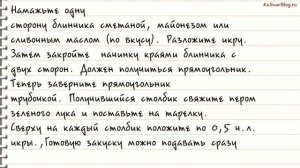 KulinarBlog.ru
Намажьте одну
сторону блинчика сметаной, майонезом или
сливочным маслом (по вкусу). Разложите икру.
Затем закройте начинку краями блинчика с
двух сторон. Должен получиться прямоугольник.
Теперь заверните прямоугольник
трубочкой. Получившийся столбик свяжите пером
зеленого лука и поставьте на тарелку.
Сверху на каждый столбик положите по 0,5 ч. л.
икры. ,Готовую закуску можно подавать сразу